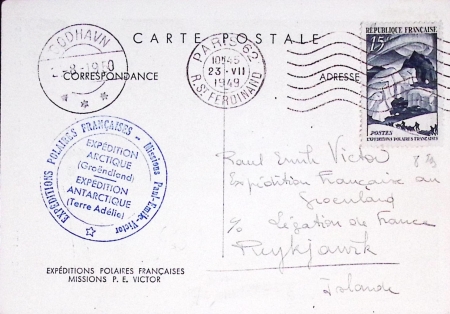 GODHAVN
CARTE POSTALE
CORRESPONDANCE
PARIS 62
10H45
23-VII
1949
R. St FERDINAND
ADRESSE
RÉPUBLIQUE FRANÇAISE
15F
POSTES
EXPÉDITIONS POLAIRES FRANÇAISES
EXPÉDITIONS POLAIRES FRANÇAISES - Missions Paul-Emile-Victor
EXPÉDITION
ARCTIQUE
(Groënland)
EXPÉDITION
ANTARCTIQUE
(Terre Adélie)
Paul Emile Victor
Expédition Française au
Groenland
c/o Légation de France
Reykjavik
Islande
EXPÉDITIONS POLAIRES FRANÇAISES
MISSIONS P. E. VICTOR